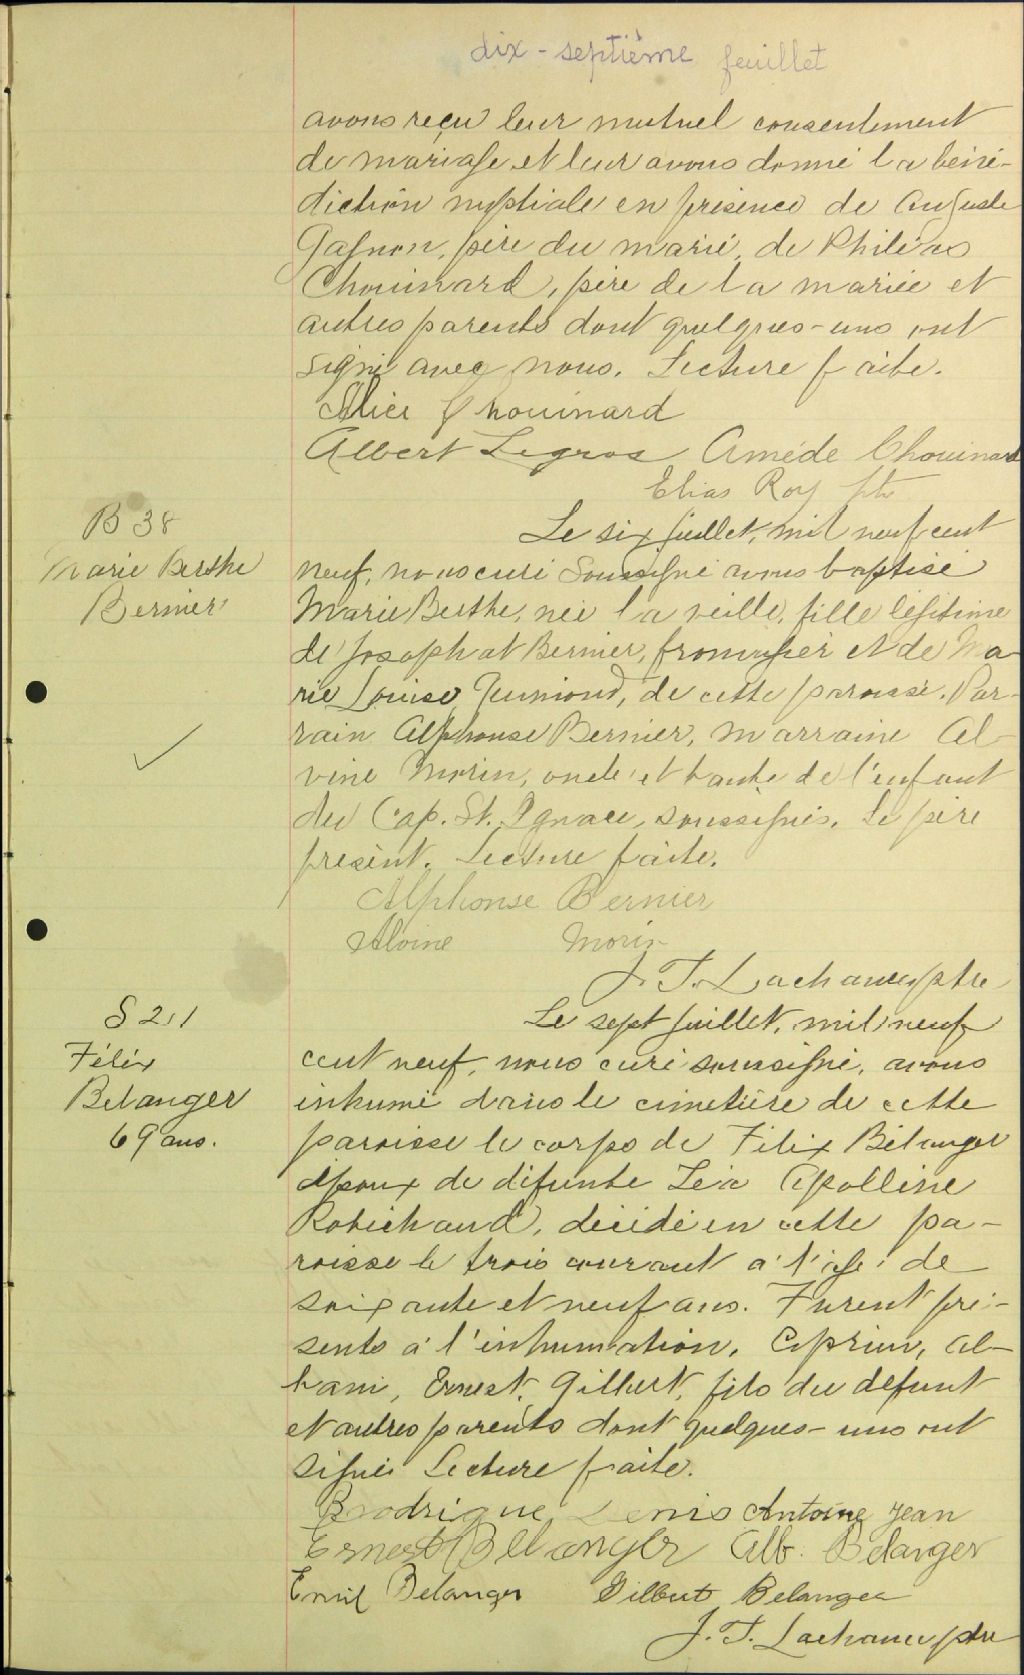 dix-septième feuillet
avons reçu leur mutuel consentement
de mariage et leur avons donné la béné-
diction nuptiale en présence de Auguste
Gagnon, père du marié, de Philéas
Chouinard, père de la mariée et
autres parents dont quelques-uns ont
signé avec nous. Lecture faite.
Alice Chouinard
Albert Legros Amédé Chouinard
Elias Roy ptr
B 38
Marie Berthe
Bernier
Le six juillet, mil neuf cent
neuf, nous curé soussigné avons baptisé
Marie Berthe, née la veille, fille légitime
de Josaphat Bernier, fromager et de Ma-
rie Louise, de cette paroisse. Par-
rain Alphonse Bernier, marraine Al-
vine Morin, oncle et tante de l'enfant
du Cap. St. Ignace, soussignés. Le père
présent. Lecture faite.
Alphonse Bernier
Alvine Morin
J. T. Lachance ptre
S 21
Félix
Belanger
69 ans.
Le sept juillet, mil neuf
cent neuf, nous curé soussigné, avons
inhumé dans le cimetière de cette
paroisse le corps de Félix Bélanger
époux de défunte Léa Apolline
Robichaud, décédé en cette pa-
roisse le trois courant à l'âge de
soixante et neuf ans. Furent pré-
sents à l'inhumation, Ciprien, Al-
bani, Ernest, Gilbert, fils du défunt
et autres parents dont quelques-uns ont
signés Lecture faite.
Rodrigue Denis Antoine Jean
Ernest Belanger Alb. Belanger
Emil Belanger Gilbert Belanger
J. T. Lachance ptre